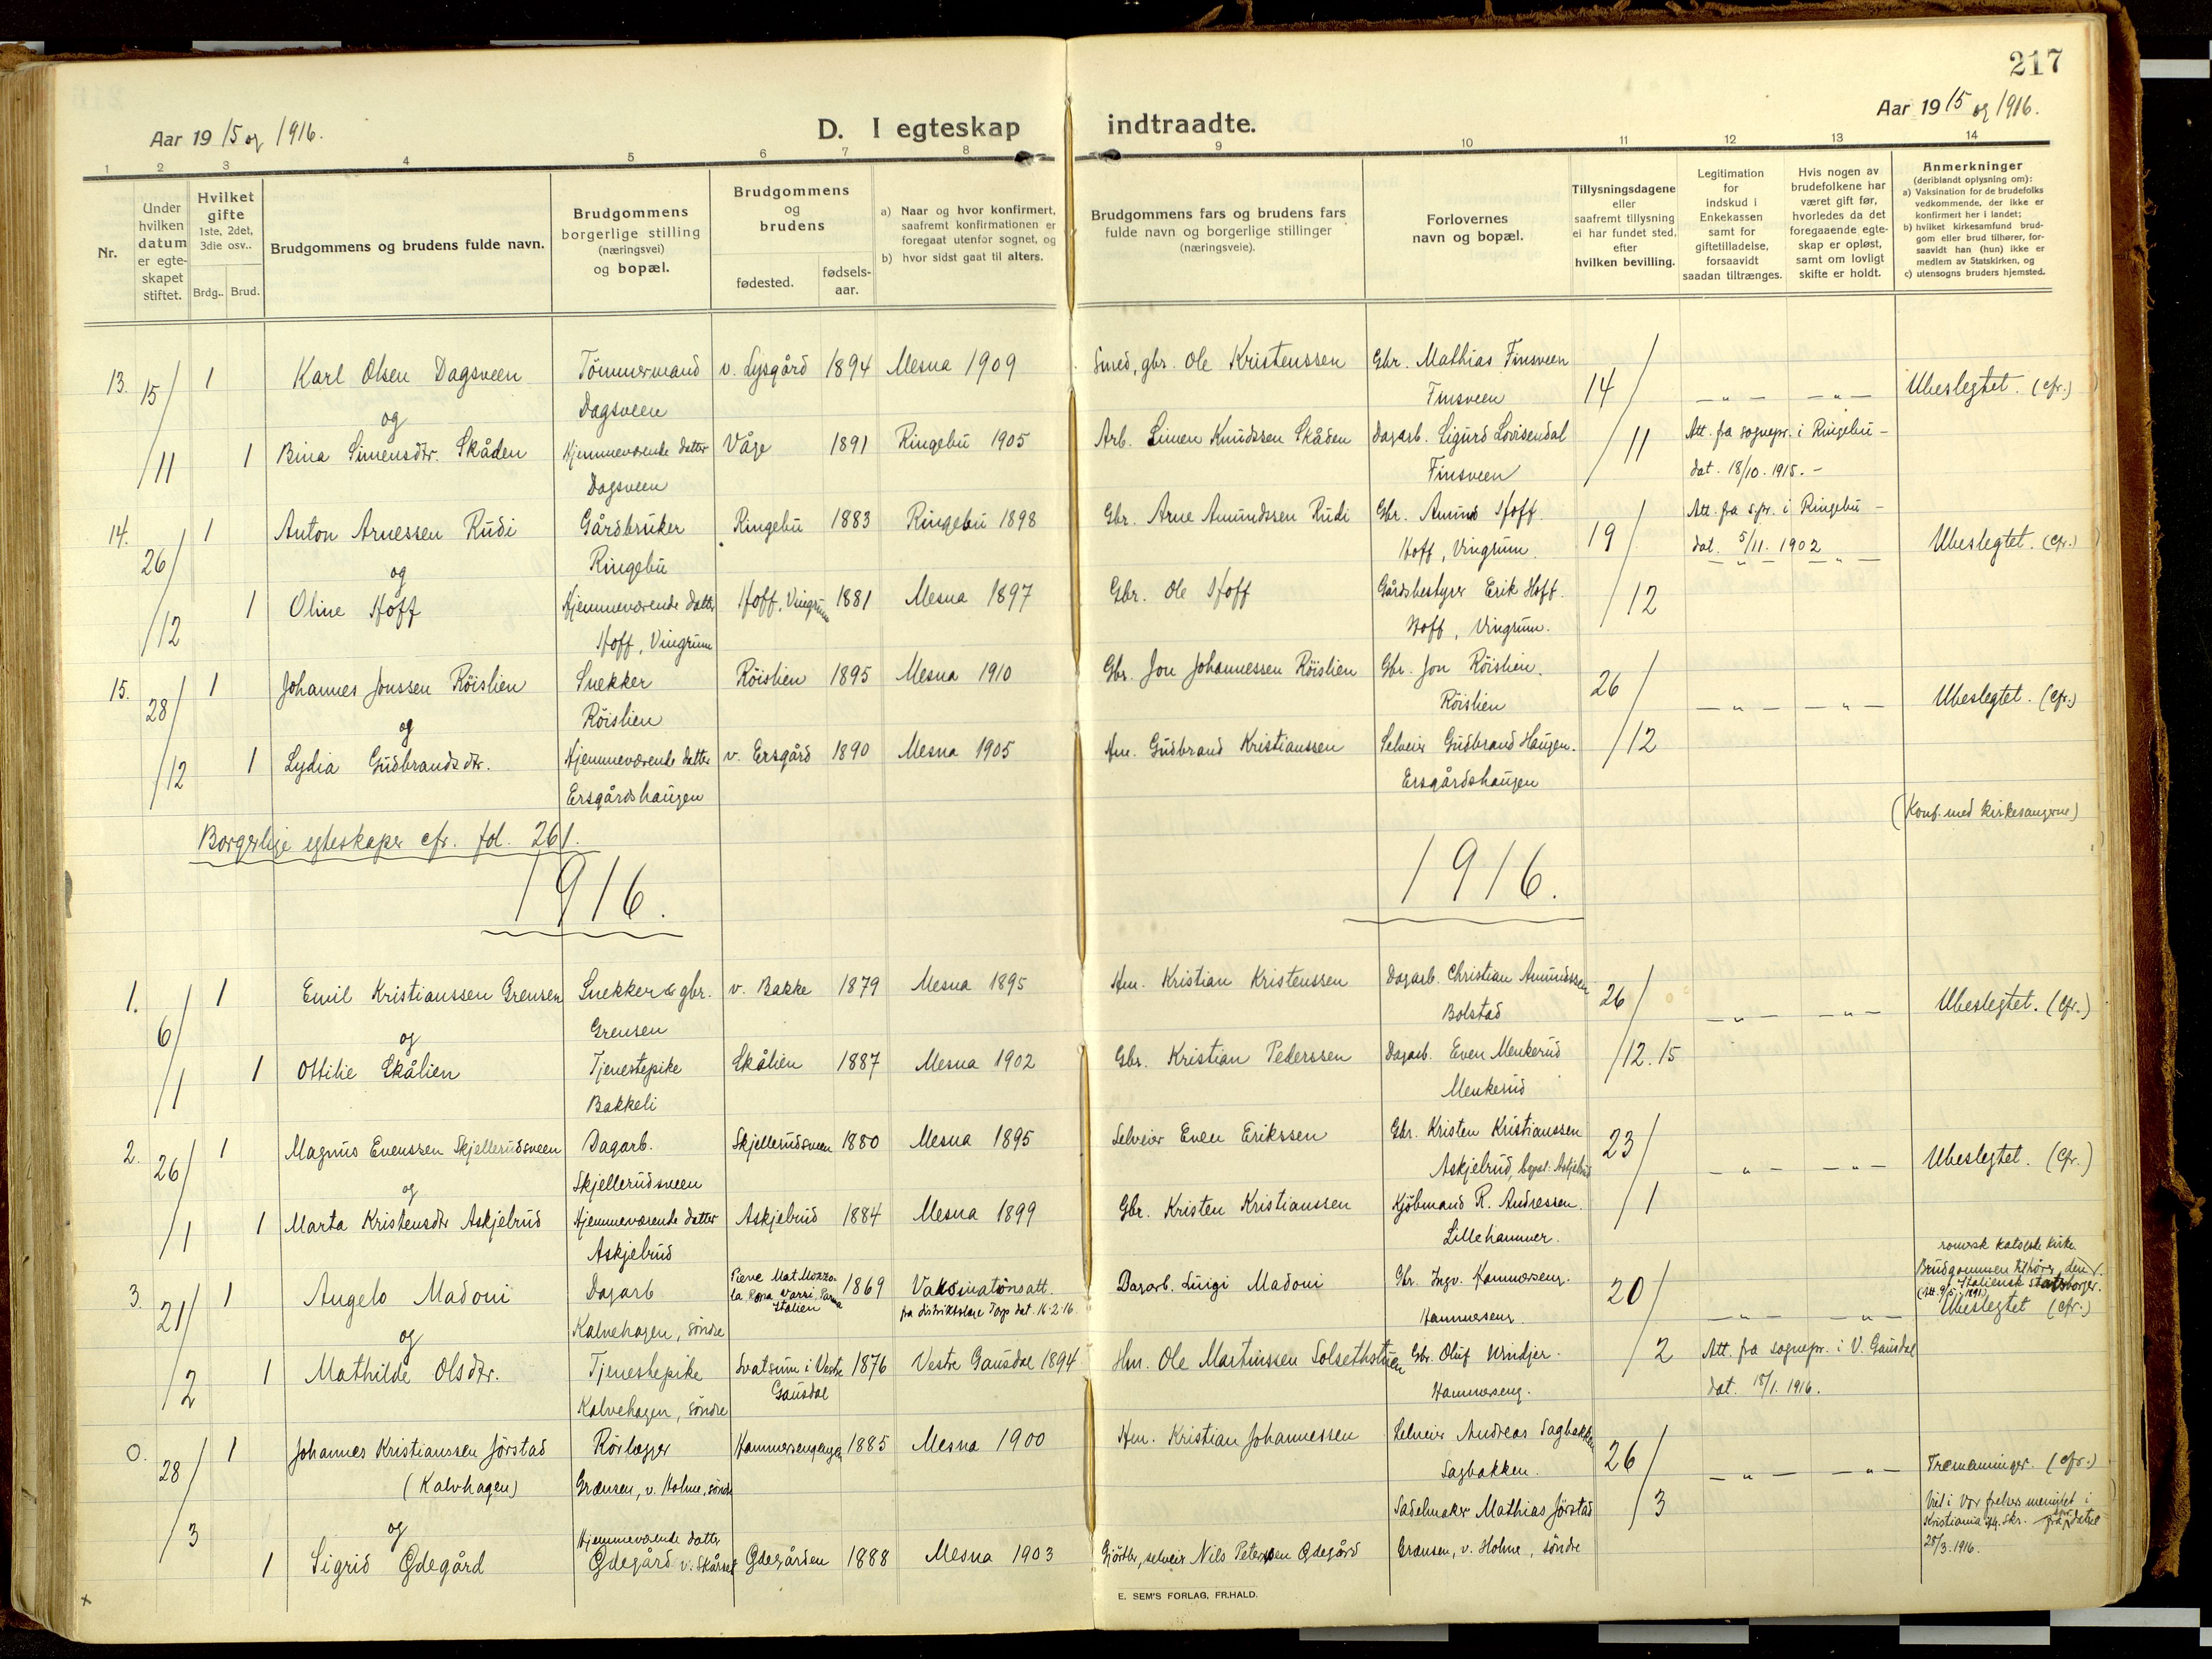 217
Aar 1915 og 1916.
D. I egteskap indtraadte.
Aar 1915 og 1916.
1 2 3 4 5 6 7 8 9 10 11 12 13 14
Nr.
Under hvilken datum er egte-skapet stiftet.
Hvilket gifte 1ste, 2det, 3die osv..
Brdg.. Brud.
Brudgommens og brudens fulde navn.
Brudgommens borgerlige stilling (næringsvei) og bopæl.
Brudgommens og brudens
fødested.
fødsels-aar.
a) Naar og hvor konfirmert, saafremt konfirmationen er foregaat utenfor sognet, og
b) hvor sidst gaat til alters.
Brudgommens fars og brudens fars fulde navn og borgerlige stillinger (næringsveie).
Forlovernes navn og bopæl.
Tillysningsdagene eller saafremt tillysning ei har fundet sted, efter hvilken bevilling.
Legitimation for indskud i Enkekassen samt for giftetilladelse, forsaavidt saadan tiltrænges.
Hvis nogen av brudefolkene har været gift før, hvorledes da det foregaaende egte-skap er opløst, samt om lovligt skifte er holdt.
Anmerkninger
(deriblandt oplysning om):
a) Vaksination for de brudefolks vedkommende, der ikke er konfirmert her i landet;
b) hvilket kirkesamfund brud-gom eller brud tilhører, for-saavidt han (hun) ikke er medlem av Statskirken, og
c) utensogns bruders hjemsted.
13. 15/11 1 Karl Olsen Dagsveen Tömmermand v. Lysgård 1894 Mesna 1909 Smed, gbr. Ole Kristenssen Gbr. Mathias Finsveen 14/11 Ubeslegtet. (cfr.)
og Dagsveen Finsveen - " - - " -
1 Bina Simensdtr. Skåden Hjemmeværende datter Våge 1891 Ringebu 1905 Arb. Simen Knudssen Skåden Dagarb. Sigurd Lovisendal Att. fra sognepr. i Ringebu -
Dagsveen Finsveen dat. 18/10. 1915. -
14. 26/12 1 Anton Arnessen Rudi Gårdbruker Ringebu 1883 Ringebu 1898 Gbr. Arne Amundssen Rudi Gbr. Amund Hoff. 19/12 Att. fra spr. i Ringebu -
og Ringebu Hoff, Vingrum. dat. 5/11. 1902 - " - - " - Ubeslegtet. (cfr.)
1 Oline Hoff Hjemmeværende datter Hoff, Vingrum 1881 Mesna 1897 Gbr. Ole Hoff Gårdsbestyrer Erik Hoff.
Hoff, Vingrum Hoff, Vingrum.
15. 28/12 1 Johannes Jonssen Röislien Snekker Röislien 1895 Mesna 1910 Gbr. Jon Johannessen Röislien Gbr. Jon Röislien. 26/12 Ubeslegtet. (cfr.)
og Röislien Röislien - " - - " -
1 Lydia Gudbrandsdtr. Hjemmeværende datter v. Ersgård 1890 Mesna 1905 Hm. Gudbrand Kristianssen Selveier Gudbrand Haugen.
Ersgårdshaugen Ersgårdshaugen
(Konf. med kirkesangerne)
Borgerlige egteskaper cfr. fol. 261.
1916. 1916.
1. 6/1 1 Emil Kristianssen Grensen Snekker & gbr. v. Bakke 1879 Mesna 1895 Hm. Kristian Kristenssen Dagarb. Christian Amundssen 26/12. 15 Ubeslegtet. (cfr.)
og Grensen Bolstad - " - - " -
1 Ottilie Skålien Tjenestepike Skålien 1887 Mesna 1902 Gbr. Kristian Pederssen Dagarb. Even Menkerud
Bakkeli Menkerud
2. 26/1 1 Magnus Evenssen Skjellerudsveen Dagarb. Skjellerudsveen 1880 Mesna 1895 Selveier Even Erikssen Gbr. Kristen Kristianssen 23/1
og Skjellerudsveen Askjelrud, bopæl: Askjelrud - " - - " - Ubeslegtet. (cfr.)
1 Marta Kristensdtr Askjelrud Hjemmeværende datter Askjelrud 1884 Mesna 1899 Gbr. Kristen Kristianssen Kjöbmand R. Andressen.
Askjelrud Lillehammer.
3. 21/2 1 Angelo Madoni Dagarb Italien 1869 Vaksinationsatt. Dagarb. Luigi Madoni Gbr. Ingv. Hammerseng. 20/2 Brudgommen tilhörer den romersk katolske kirke.
Italiensk statsborger.
og Kalvehagen, söndre fra distriktslæge Torp dat. 16-2-16. Hammerseng - " - - " - Ubeslegtet (cfr.)
1 Mathilde Olsdtr. Tjenestepike Svatsum i Vestre Gausdal 1876 Vestre Gausdal 1894 Hm. Ole Martinssen Solsethstuen Gbr. Oluf Att. fra sognepr. i V. Gausdal
Kalvehagen, söndre Hammerseng. dat. 18/1. 1916.
0. 28/3 1 Johannes Kristianssen Jörstad Rörlægger Hammersengengen 1885 Mesna 1900 Hm. Kristian Johannessen Selveier Andreas Sagbakken 26/3
(Kalvhagen) Grænsen, v. Holme, söndre Sagbakken. - " - - " - Tremenninger. (cfr.)
og Sadelmaker Mathias Jörstad Viet i Vor frelsers menighet i Kristiania
1 Sigrid Ödegård Hjemmeværende datter Ödegård v. Skårset Ödegården 1888 Mesna 1903 Gjörtler, selveier Nils Peterssen Ödegård Grænsen, v. Holme, söndre 28/3. 1916.
x
E. SEM'S FORLAG, FR.HALD.